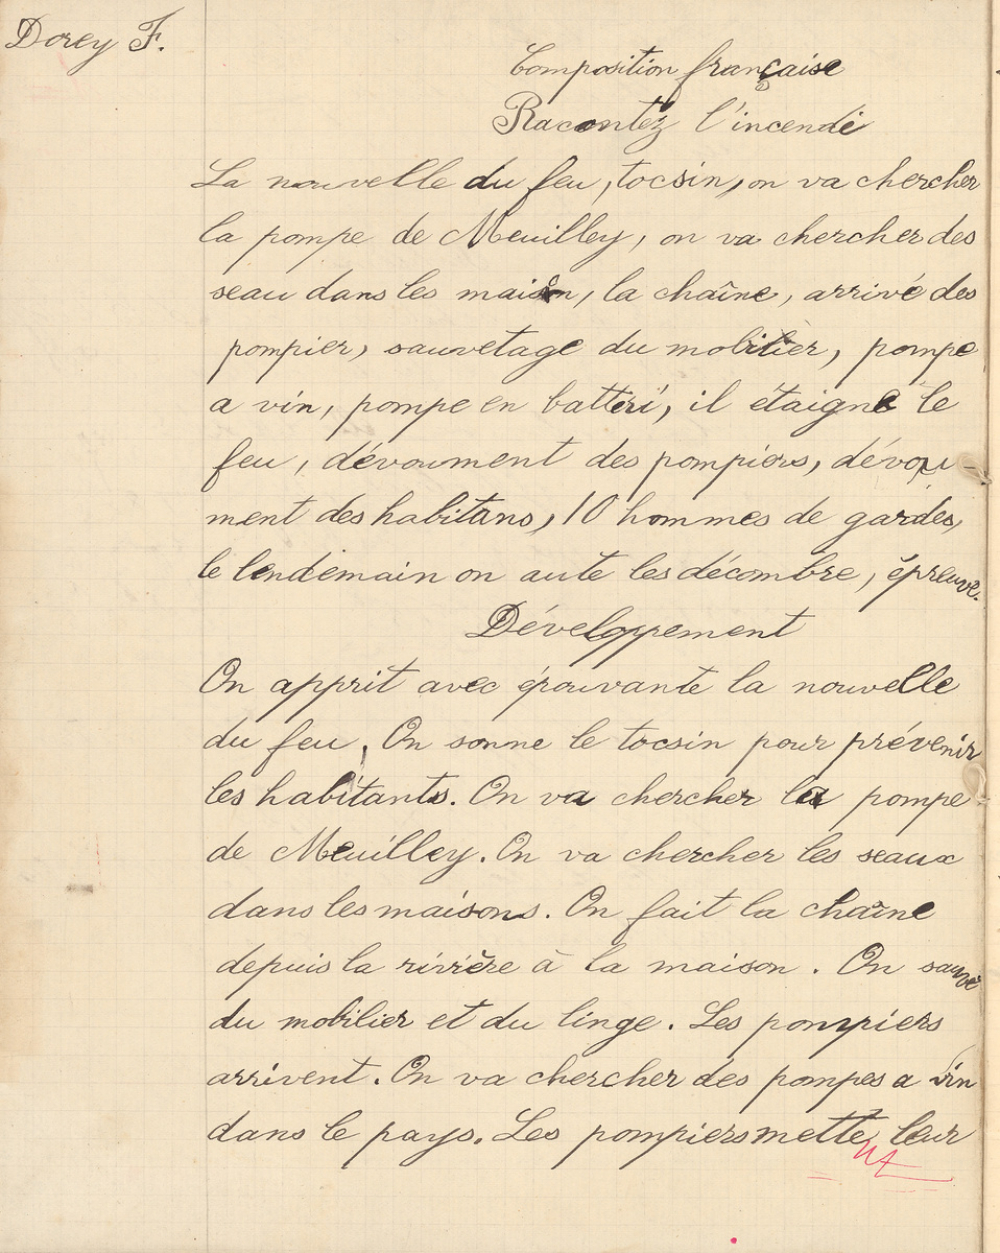 Dorey F.
Composition française
Racontez l'incendie
La nouvelle du feu, tocsin, on va chercher
la pompe de Meuilley, on va chercher des
seau dans les maison, la chaîne, arrivé des
pompier, sauvetage du mobilier, pompe
a vin, pompe en batteri, il étaigne le
feu, dévoument des pompiers, dévou-
ment des habitans, 10 hommes de gardes,
le lendemain on aute les décombre, épreuve.
Développement
On apprit avec épouvante la nouvelle
du feu. On sonne le tocsin pour prévenir
les habitants. On va chercher la pompe
de Meuilley. On va chercher les seaux
dans les maisons. On fait la chaîne
depuis la rivière à la maison. On sauve
du mobilier et du linge. Les pompiers
arrivent. On va chercher des pompes a vin
dans le pays. Les pompiers mette leur
nt